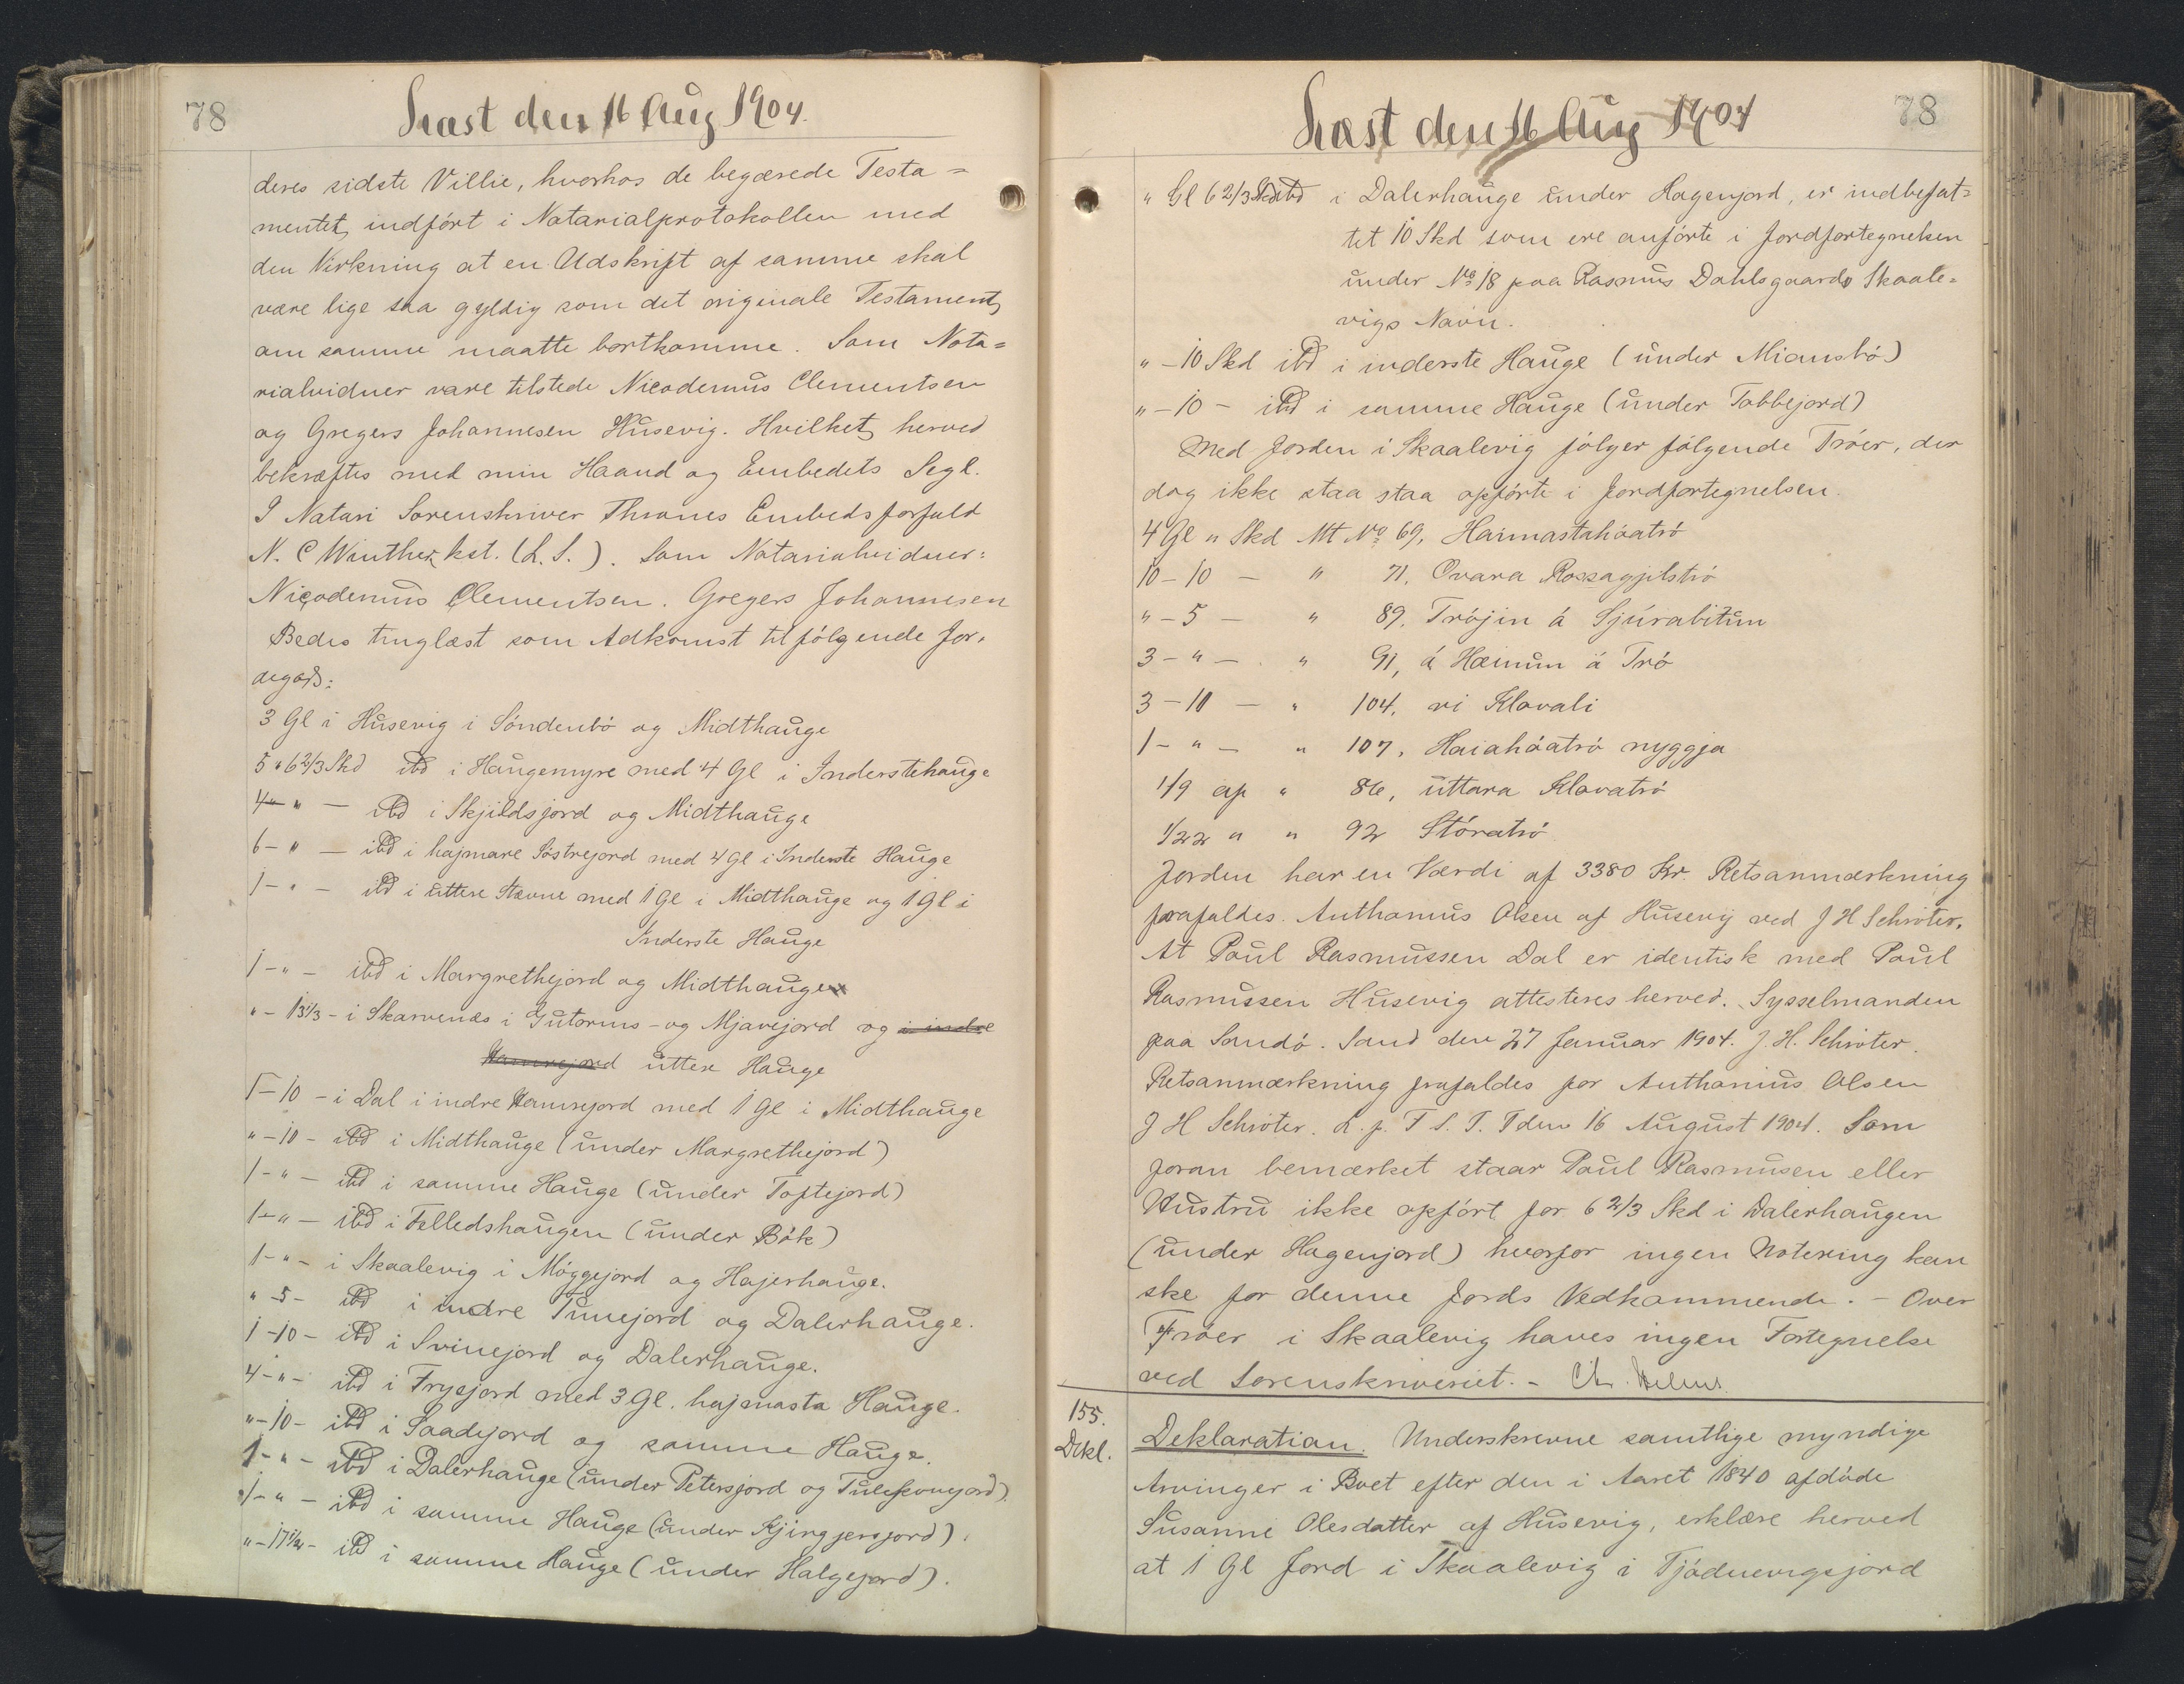 78
Læst den 16 Aug 1904.
deres sidste Villie, hvorhos de begærede Testa=
mentet indført i Notarialprotokollen med
den Virkning at en Udskrift af samme skal
være lige saa gyldig som det originale Testament,
om samme maatte bortkomme. Som Nota=
rialvidner vare tilstede Nicodemus Clementsen
og Gregers Johannesen Husevig. Hvilket herved
bekræftes med min Haand og Embedets Segl.
I Notari Sorenskriver Thranes Embedsforfald
N. C Winther kst. (L. S.). Som Notarialvidner:
Nicodemus Clementsen. Gregers Johannesen
Bedes tinglæst som Adkomst til følgende Jor-
degods:
3 Gl i Husevig i Sóndenbó og Midthauge
5 " 6 2/3 Skd ibd i Haugemyre med 4 Gl i Inderstehauge
4 - " - ibd i Skjildsjord og Midthauge
6 - " - ibd i hajmare Sóstrejord med 4 Gl i Inderste Hauge
1 - " - ibd i uttere Stovne med 1 Gl i Midthauge og 1 Gl i
Inderste Hauge
1 - " - ibd i Margrethejord og Midthauge
" - 13 1/3 - i Skarvenæs i Gutorms- og Mjavejord og i indre
Hamrejord uttere Hauge
1 - 10 - i Dal i indre Hamrejord med 1 Gl i Midthauge
" - 10 - ibd i Midthauge (under Margrethejord)
1 - " - ibd i samme Hauge (under Toftejord)
1 - " - ibd i Fælledshaugen (under Bók)
1 - " - i Skaalevig i Móggejord og Hajerhauge.
" - 5 - ibd i indre Tunejord og Dalerhauge.
1 - 10 - ibd i Svinejord og Dalerhauge.
4 - " - ibd i Frysjord med 3 Gl. hajmasta Hauge.
" - 10 - ibd i Saadejord og samme Hauge.
1 - " - ibd i Dalerhauge (under Petersjord og )
1 - " - ibd i samme Hauge (under Kjingjersjord).
" - 17 1/2 - ibd i samme Hauge (under Halgejord).
Læst den 16 Aug 1904
78
" Gl 6 2/3 Skd ibd i Dalerhauge under Hagenjord, er indbefat=
tet 10 Skd som ere anførte i Jordfortegnelsen
under No 18 paa Rasmus Dahlsgaards Skaale=
vigs Navn.
" - 10 Skd ibd i inderste Hauge (under Miansbó)
" - 10 - ibd i samme Hauge (under Tobbejord)
Med Jorden i Skaalevig følger følgende Tróer, der
dog ikke staa staa opførte i Jordfortegnelsen.
4 Gl " Skd Mt No 69, Haimastahóatró
10 - 10 - " 71. Ovara Rossagjilstró
" - 5 - " 89. Trójin á Sjúrabitum
3 - " - " 91, á Hæinum á Tró
3 - 10 - " 104. vi Klovali
1 - " - " 107. Haiahóatró nyggja
1/9 af " 86, uttara Klovatró
1/22 " " 92 Stóratró
Jorden har en Værdi af 3380 Kr. Retsanmærkning
frafaldes. Anthonius Olsen af Husevig ved J H Schróter.
At Poul Rasmussen Dal er identisk med Poul
Rasmussen Husevig attesteres herved. Sysselmanden
paa Sandó. Sand den 27 Januar 1904. J. H. Schróter.
Retsanmærkning frafaldes for Anthonius Olsen
J H Schróter. L. p. T S. T. T den 16 August 1904. Som
foran bemærket staar Poul Rasmusen eller
Hustru ikke opført for 6 2/3 Skd i Dalerhaugen
(under Hagenjord) hvorfor ingen Notering kan
ske for denne Jords Vedkommende. - Over
Tróer i Skaalevig haves ingen Fortegnelse
ved Sorenskriveriet. -
155.
Dekl.
Deklaration. Underskrevne samtlige myndige
Arvinger i Boet efter den i Aaret 1840 afdøde
Susanne Olesdatter af Husevig, erklære herved
at 1 Gl Jord i Skaalevig i Tjódnevigsjord